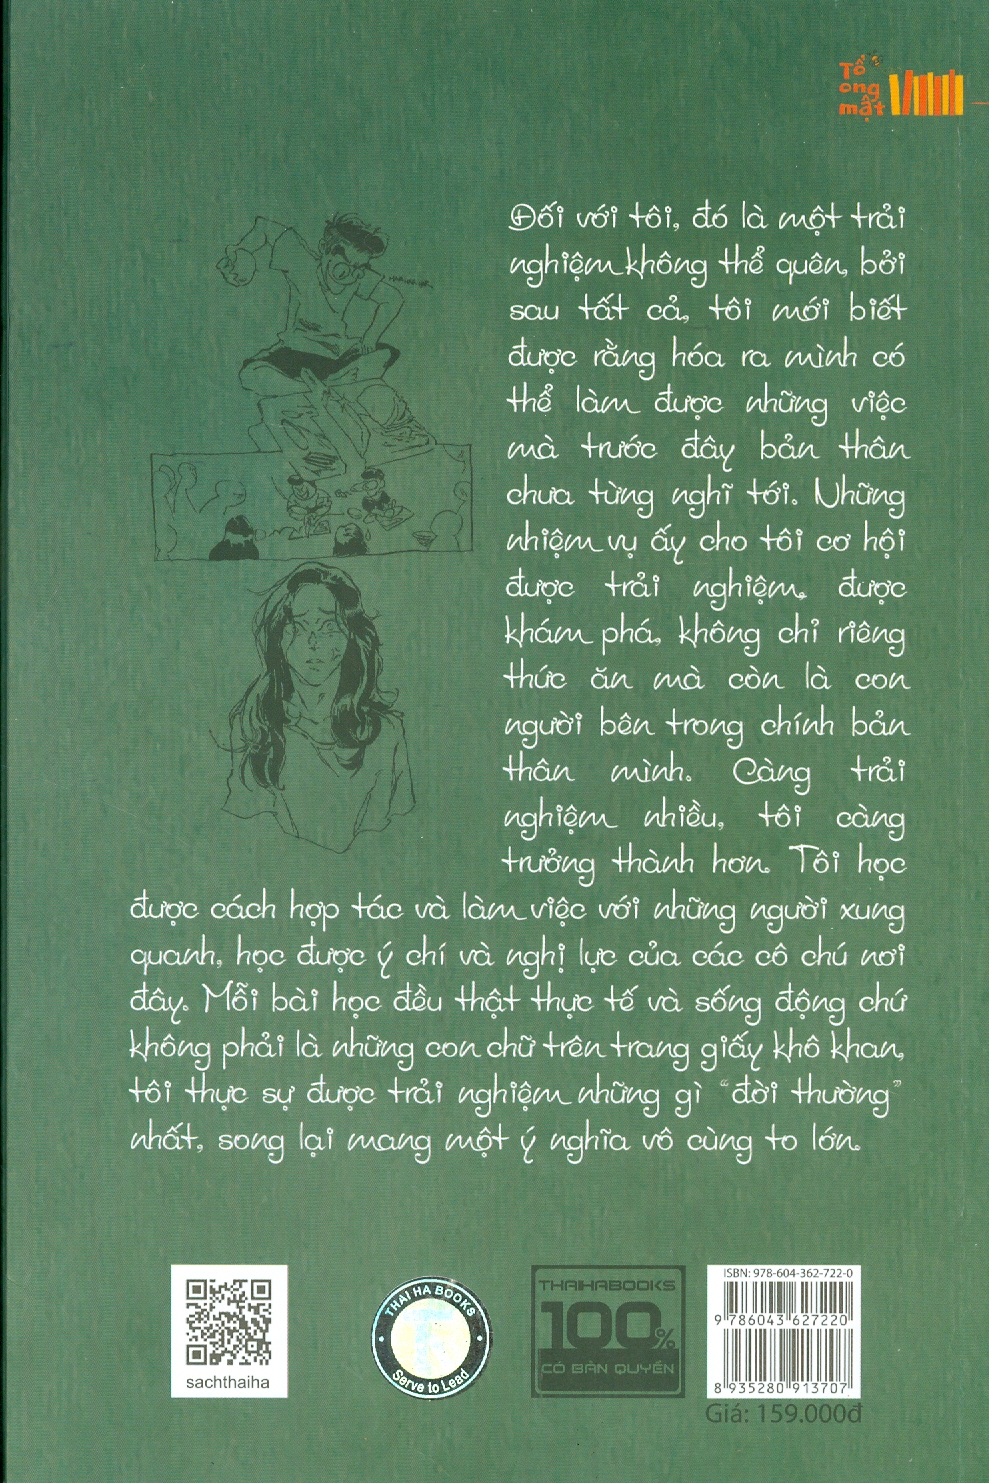 Tổ
ong
mật
Đối với tôi, đó là một trải
nghiệm không thể quên, bởi
sau tất cả, tôi mới biết
được rằng hóa ra mình có
thể làm được những việc
mà trước đây bản thân
chưa từng nghĩ tới. Những
nhiệm vụ ấy cho tôi cơ hội
được trải nghiệm, được
khám phá, không chỉ riêng
thức ăn mà còn là con
người bên trong chính bản
thân mình. Càng trải
nghiệm nhiều, tôi càng
trưởng thành hơn. Tôi học
được cách hợp tác và làm việc với những người xung
quanh, học được ý chí và nghị lực của các cô chú nơi
đây. Mỗi bài học đều thật thực tế và sống động chứ
không phải là những con chữ trên trang giấy khô khan,
tôi thực sự được trải nghiệm những gì “đời thường”
nhất, song lại mang một ý nghĩa vô cùng to lớn.
sachthaiha
THAI HA BOOKS
Serve to Lead
THAIHABOOKS
100%
CÓ BẢN QUYỀN
ISBN: 978-604-362-722-0
9 786043 627220
8 935280 913707
Giá: 159.000đ